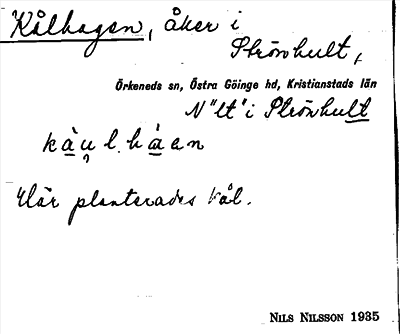 Kålhagen, åker i
Strönhult,
Örkeneds sn, Östra Göinge hd, Kristianstads län
N"lt" i Strönhult
kàu̯l.hàen
Här planterades kål.
NILS NILSSON 1935